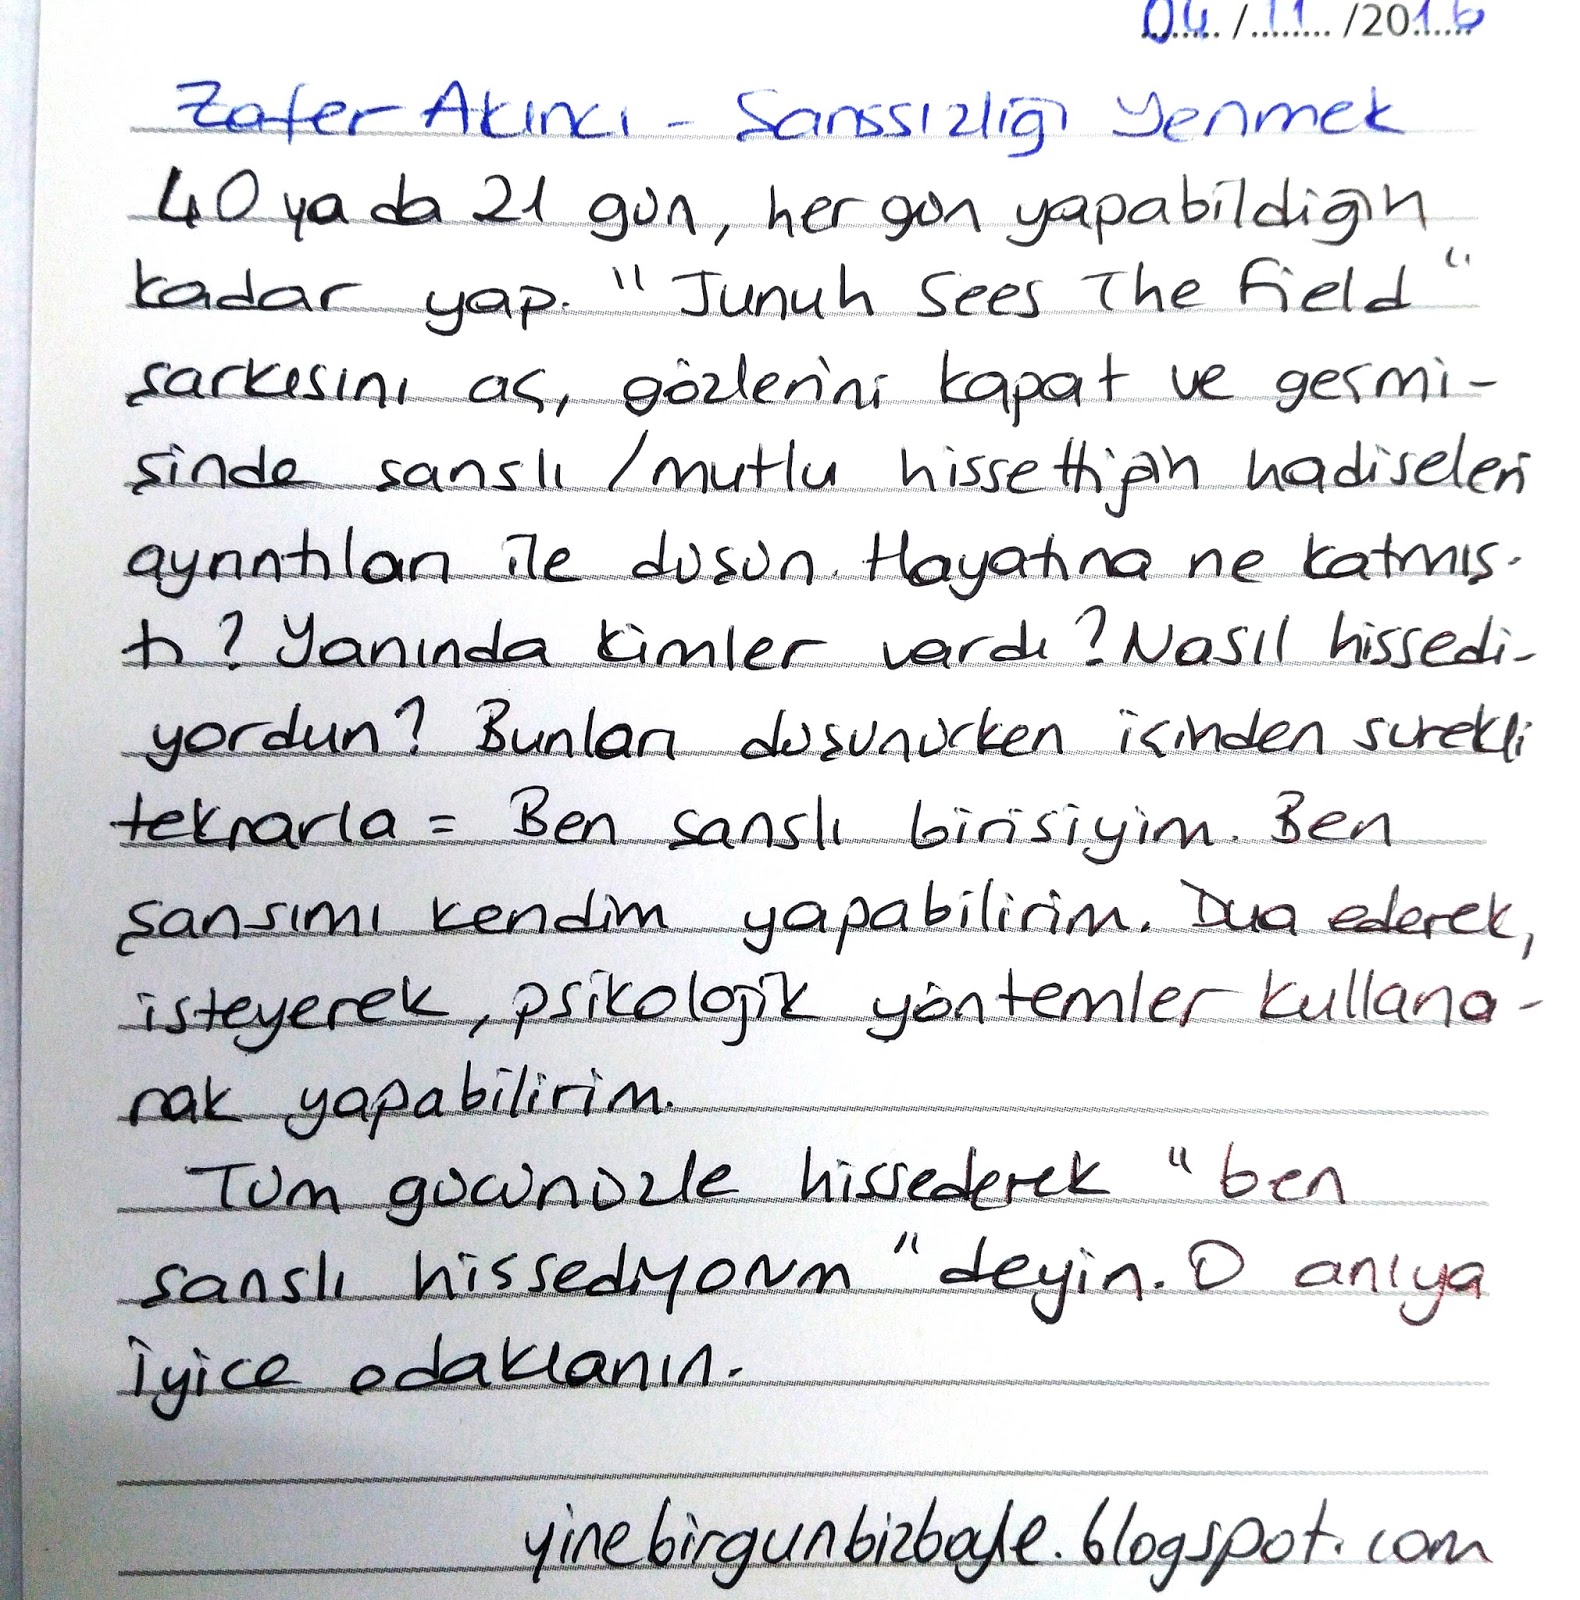 04/11/2016
Zafer Akıncı - Şanssızlığı Yenmek
40 ya da 21 gün, her gün yapabildiğin
kadar yap. "Junuh Sees The Field"
şarkısını aç, gözlerini kapat ve geçmi-
şinde şanslı / mutlu hissettiğin hadiseleri
ayrıntıları ile düşün. Hayatına ne katmış-
tı? Yanında kimler vardı? Nasıl hissedi-
yordun? Bunları düşünürken içinden sürekli
teknarla = Ben şanslı birisiyim. Ben
şansımı kendim yapabilirim. Dua ederek,
isteyerek, psikolojik yöntemler kullana-
rak yapabilirim.
Tüm gücünüzle hissederek "ben
şanslı hissediyorum" deyin. O anıya
iyice odaklanın.
yinebirgunbizboyle.blogspot.com